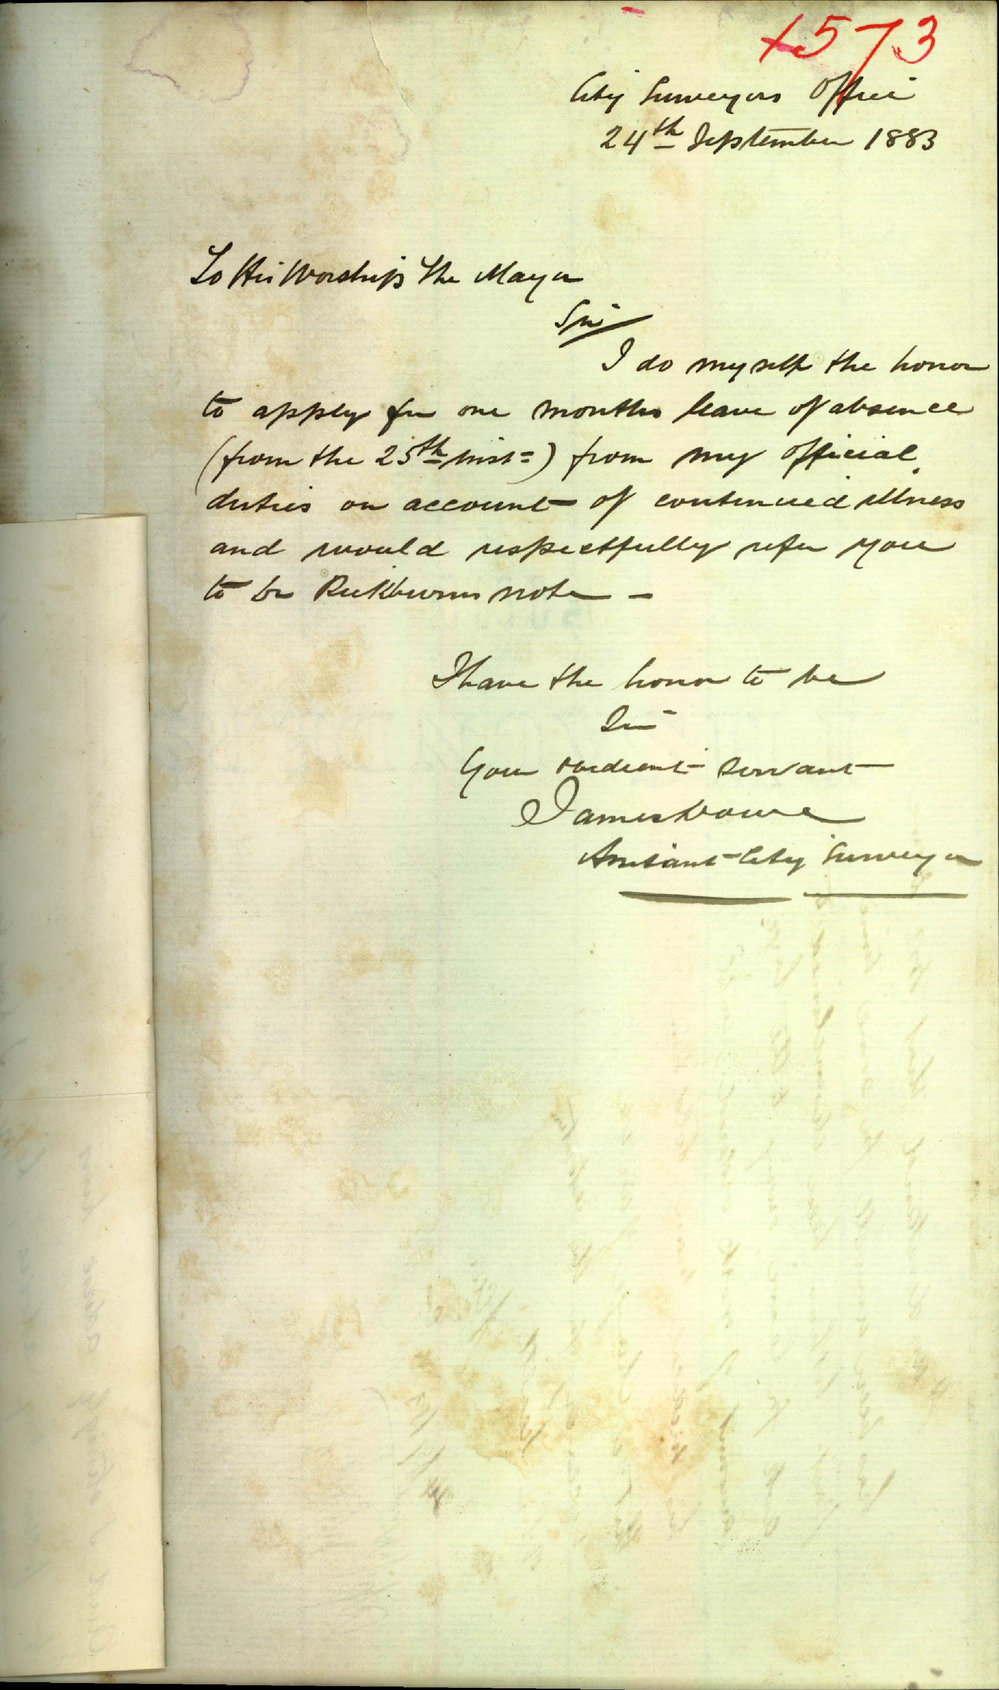 1573
City Surveyors Office
24th September 1883
To His Worship The Mayor
Sir
I do myself the honor
to apply for one months leave of absence
(from the 25th inst=) from my official
duties on account of continued illness
and would respectfully refer you
to Dr note —
I have the honor to be
Sir
Your obedient servant
James
Assistant City Surveyor